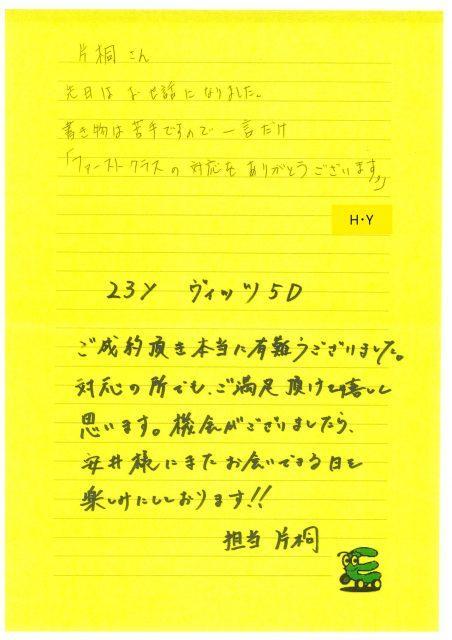 片桐さん
先日はお世話になりました。
書き物は苦手ですので一言だけ
「ファーストクラスの対応をありがとうございます」
H・Y
23Y ヴィッツ5D
ご成約頂き本当に有難うございました。
対応の所でも、ご満足頂けて嬉しく
思います。機会がございましたら、
安井様にまたお会いできる日を
楽しみにしております!!
担当 片桐